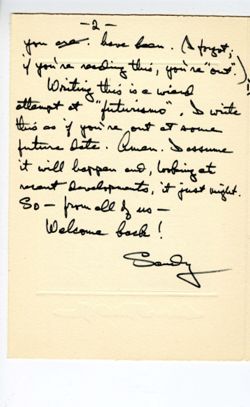 -2-
you are. have been. (I forgot,
if you're reading this, you're "out".)
Writing this is a weird
attempt at "futurismo". I write
this as if you're out at some
future date. Amen. I assume
it will happen and, looking at
recent developments, it just might.
So - from all of us -
Welcome back!
Sandy